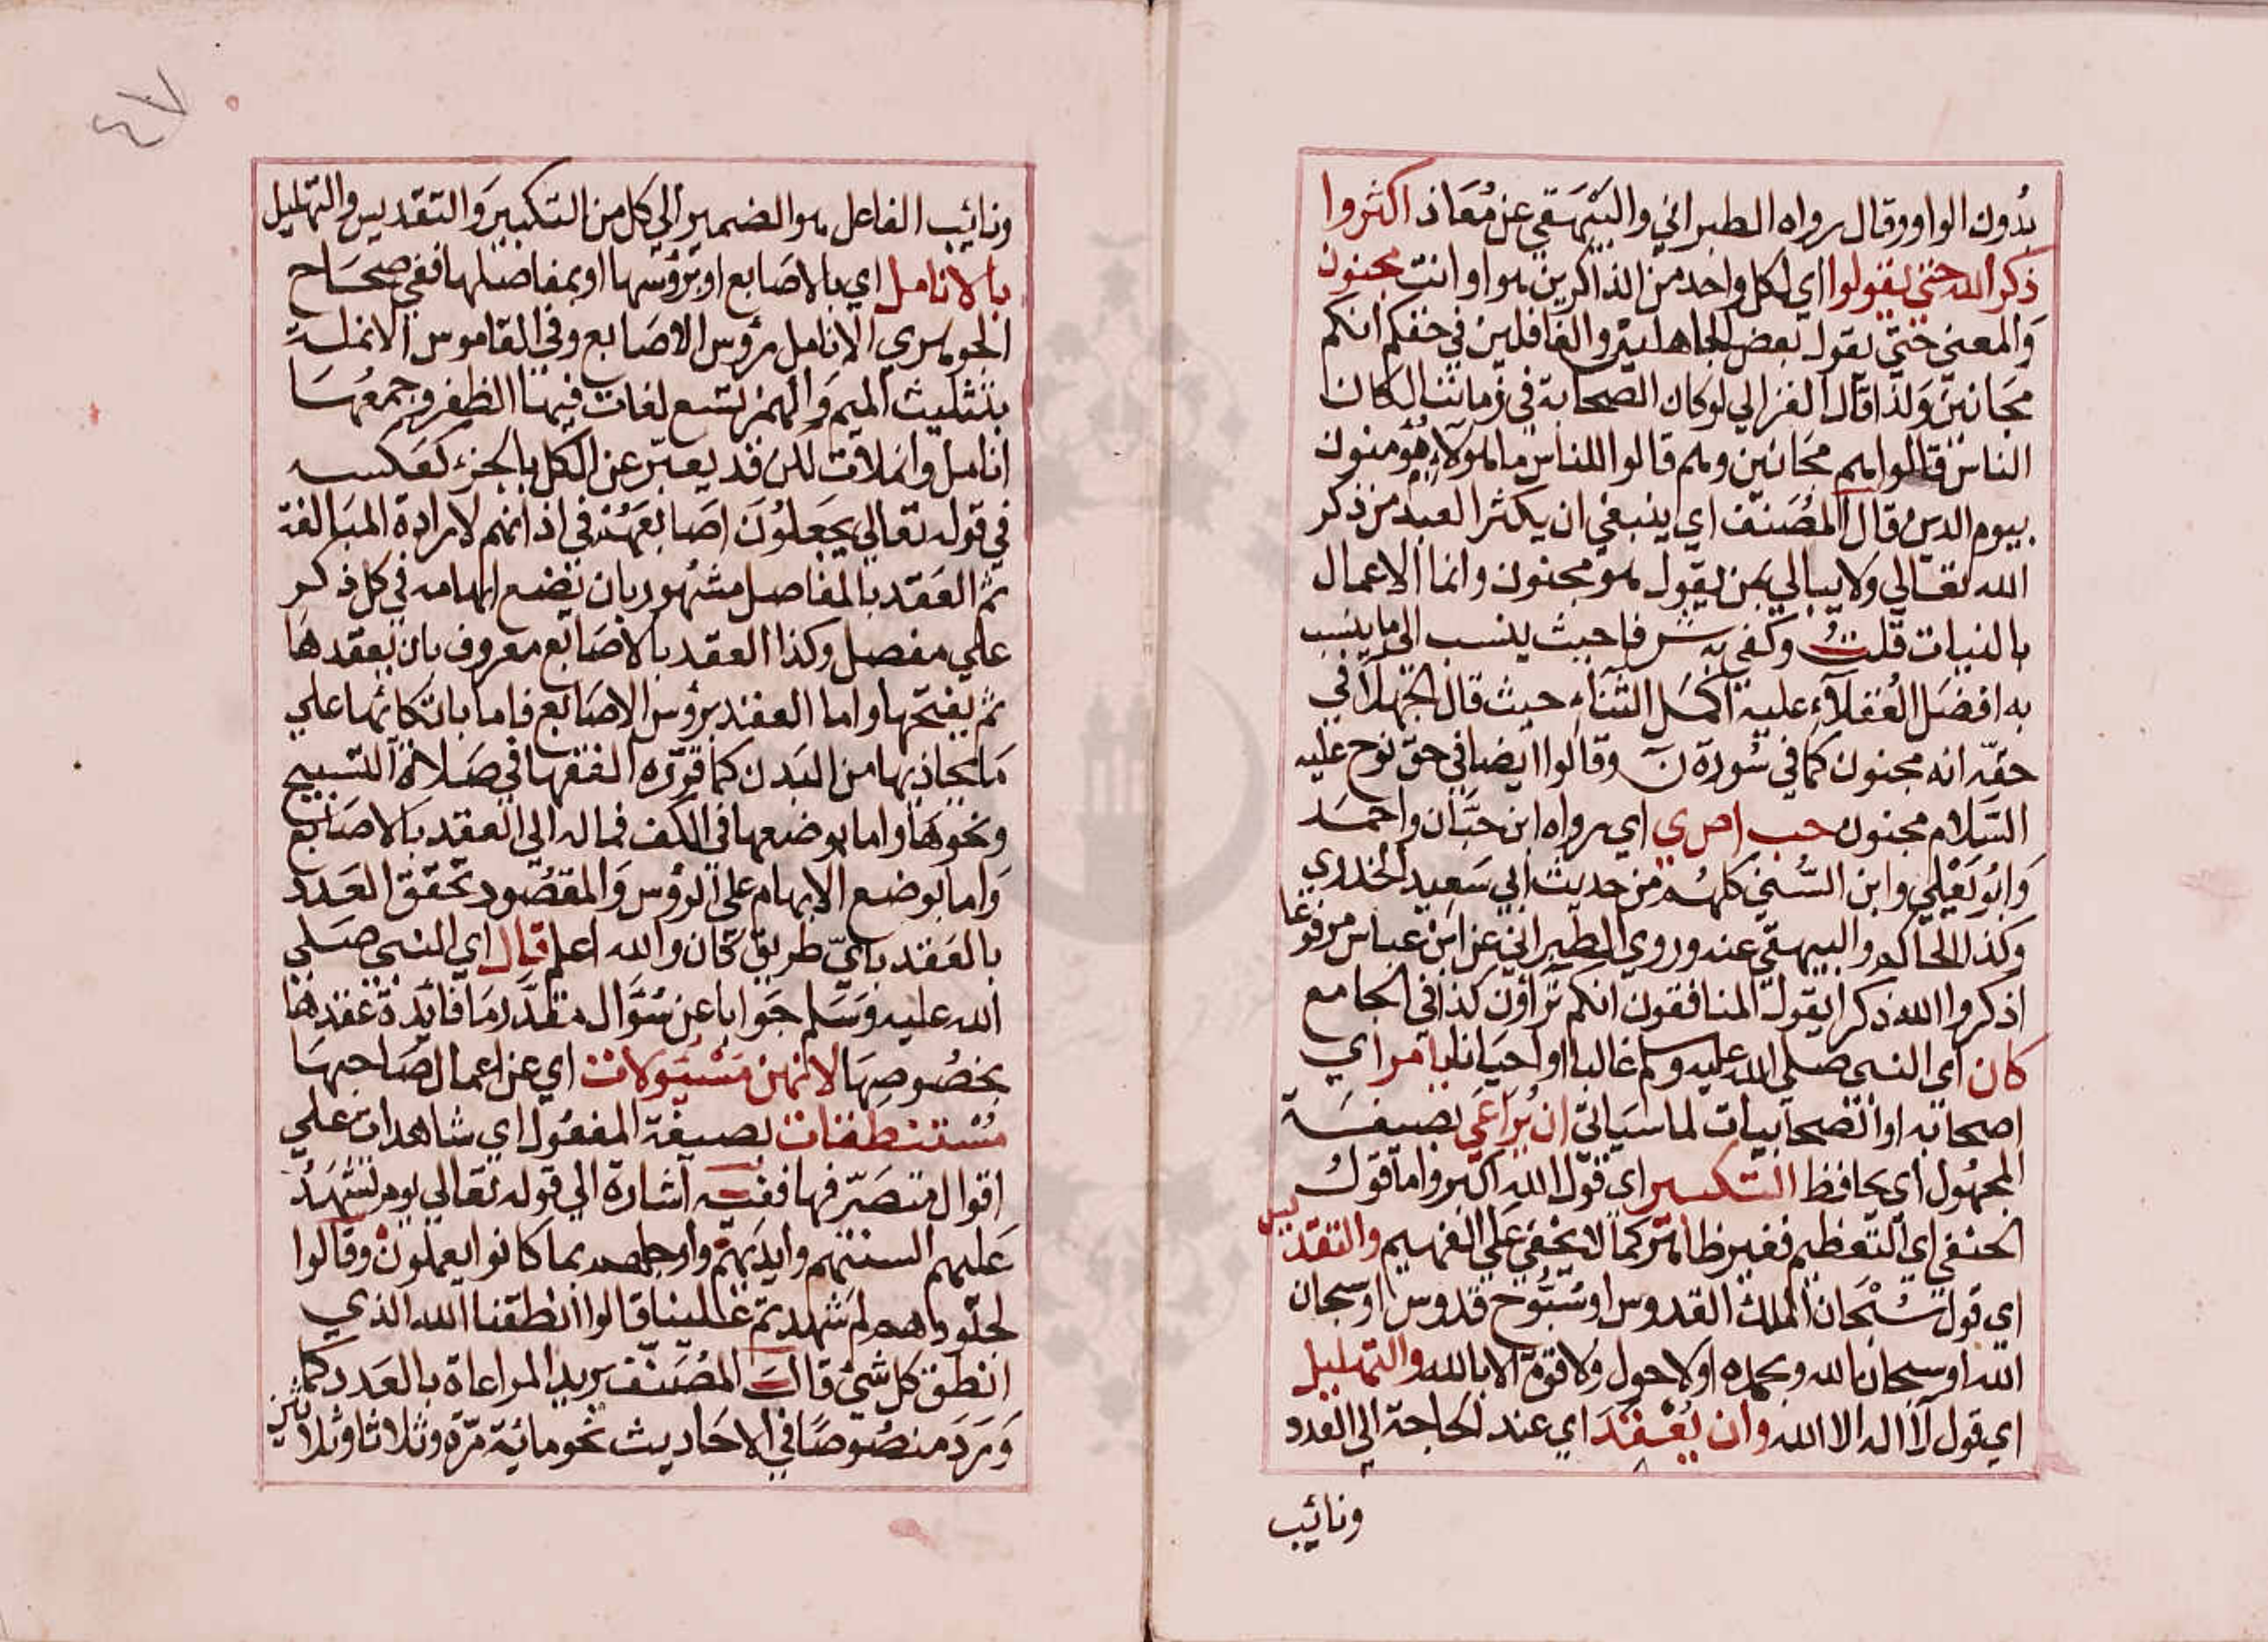 بدون الواو وقال رواه الطبراني والبيهقي عن معاذ اكثروا
ذكر الله حتى يقولوا اي لكل واحد من الذاكرين هو او انت مجنون
والمعنى حتى يقول بعض الجاهلين والغافلين في حقكم انكم
مجانين ولذا قال الغزالي لو كان الصحابة في زماننا لكان
الناس قالوا هم مجانين وهم قالوا للناس ما هولاء مؤمنون
بيوم الدين قال المصنف اي ينبغي ان يكثر العبد من ذكر
الله تعالي ولا يبالي بمن يقول هو مجنون وانما الاعمال
بالنيات قلت وكفي به شرفا حيث ينسب الى ما ينسب
به افضل العقلاء عليه اكمل الثناء حيث قال الجهلا في
حقه انه مجنون كما في سورة ن وقالوا ايضا في حق نوح عليه
السلام مجنون حب اصري اي رواه ابن حبان واحمد
وابو يعلي وابن السني كلهم من حديث ابي سعيد الخدري
وكذا الحاكم والبيهقي عنه وروي الطبراني عن ابن عباس مرفوعا
اذكروا الله ذكرا يقول المنافقون انكم تراؤن كذا في الجامع
كان اي النبي صلي الله عليه وسلم غالبا او احيانا يامر اي
اصحابه او الصحابيات لما سياتي ان يراعي بصيغة
المجهول اي يحافظ التكبير اي قول الله اكبر واما قول
الحنفي اي التعظيم فغير ظاهر كما لا يخفي علي الفهيم والتقديس
اي قول سبحان الملك القدوس او سبوح قدوس او سبحان
الله او سبحان الله وبحمده او لا حول ولا قوة الا بالله والتهليل
اي قول لا اله الا الله وان يعقد اي عند الحاجة الي العدد
ونائب
٤٧
ونائب الفاعل هو الضمير الي كل من التكبير والتقديس والتهليل
بالانامل اي بالاصابع او برؤسها او بمفاصلها ففي صحاح
الجوهري الانامل رؤس الاصابع وفي القاموس الانملة
بتثليث الميم والهمز تسع لغات فيها الظفر وجمعها
انامل وانملات لكن قد يعبر عن الكل بالجزء كعكسه
في قوله تعالي يجعلون اصابعهم في اذانهم لارادة المبالغة
ثم العقد بالمفاصل مشهور بان يضع ابهامه في كل ذكر
علي مفصل وكذا العقد بالاصابع معروف بان يعقدها
ثم يفتحها واما العقد برؤس الاصابع فاما باتكائها علي
ما يحاذيها من البدن كما قرره الفقها في صلاة التسبيح
ونحوها واما بوضعها في الكف فماله الي العقد بالاصابع
واما بوضع الابهام علي الرؤس والمقصود تحقق العدد
بالعقد باي طريق كان والله اعلم قال اي النبي صلي
الله عليه وسلم جوابا عن سؤال مقدر ما فايدة عقدها
بخصوصها لانهن مسئولات اي عن اعمال صاحبها
مستنطقات بصيغة المفعول اي شاهدات علي
اقوال متصرفها ففيه اشارة الي قوله تعالي يوم تشهد
عليهم السنتهم وايديهم وارجلهم بما كانوا يعملون وقالوا
لجلودهم لم شهدتم علينا قالوا انطقنا الله الذي
انطق كل شئ قال المصنف يريد المراعاة بالعدد كما
ورد منصوصا في الاحاديث نحو مائة مرة وثلاثا وثلاثين